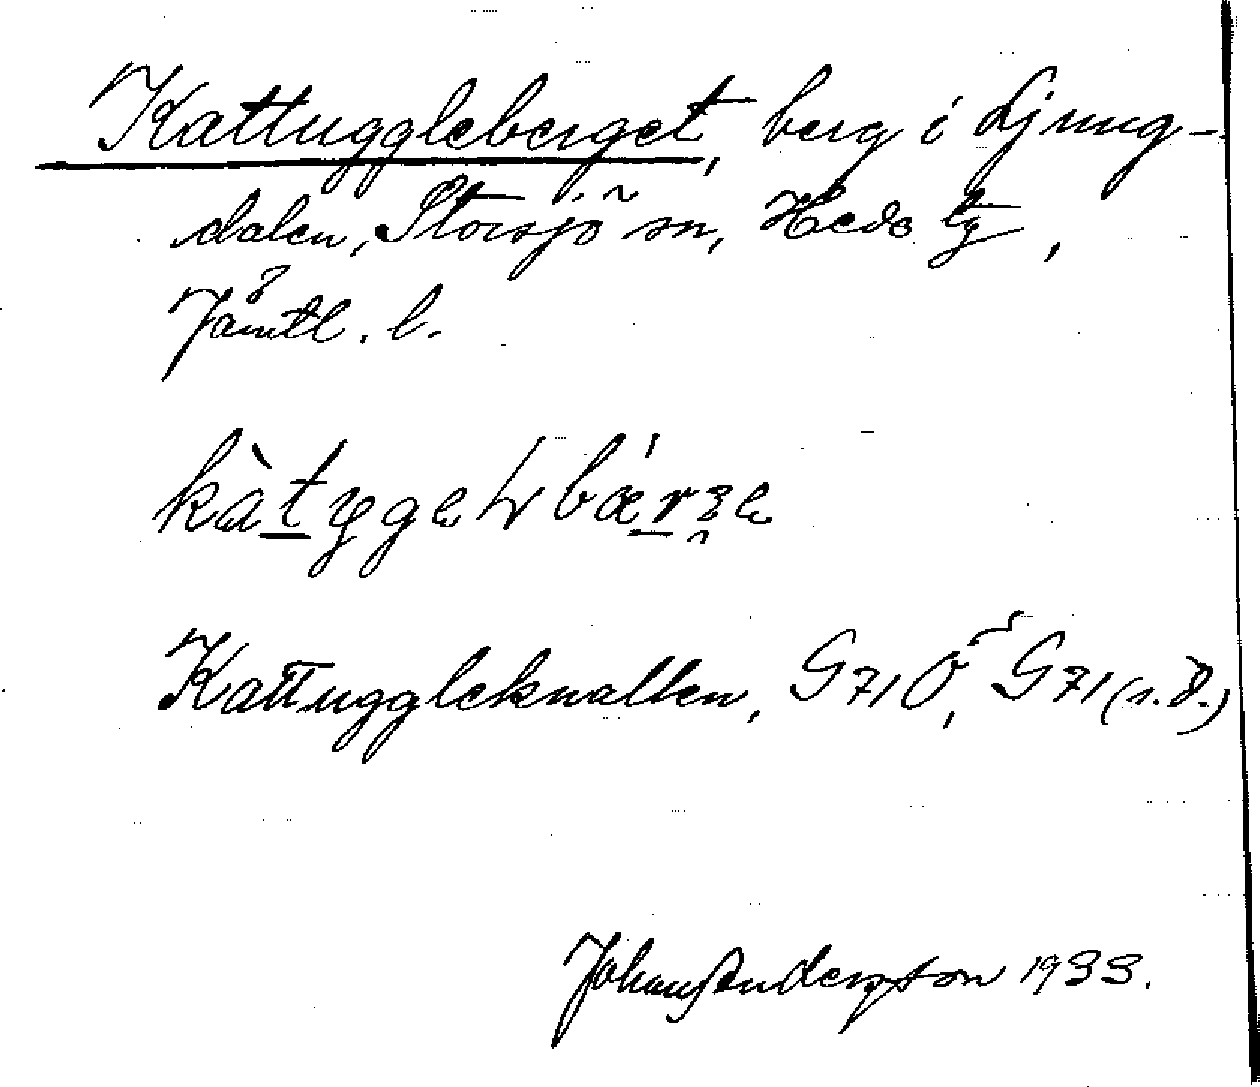 Kattuggleberget, berg i Ljung-
dalen, Storsjö sn, Hede tg,
Jämtl. l.
Kattuggleknallen, G 71 Ö, G 71 (n.ö.)
Johans Anderzson 1933.